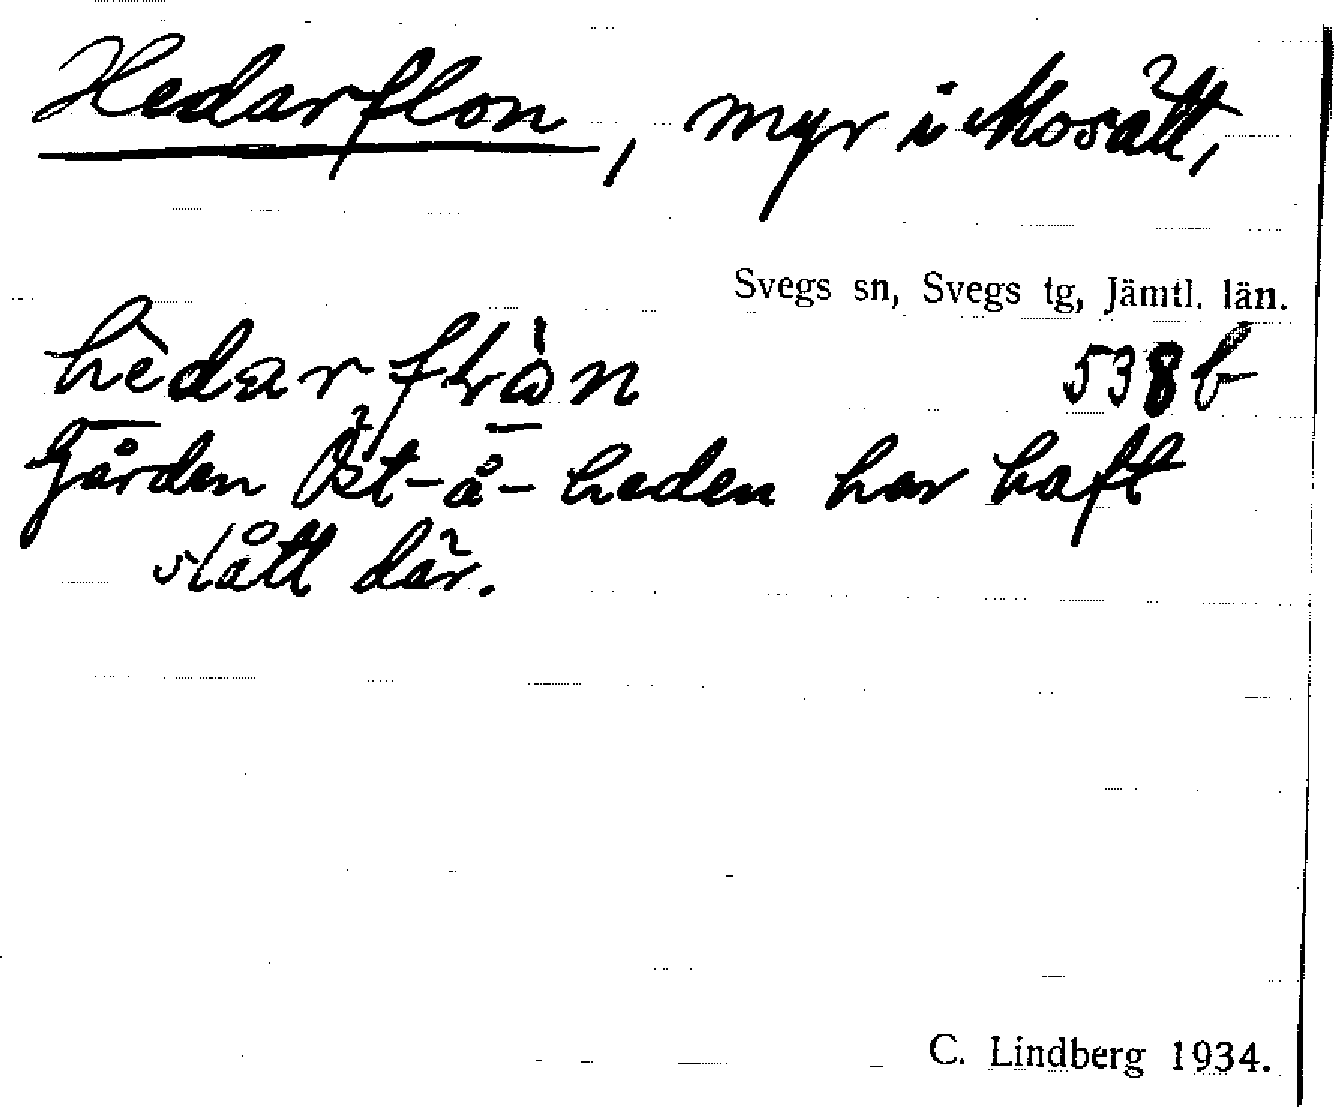 Hedarflon, myr i Mosätt,
Svegs sn, Svegs tg, Jämtl. län.
hèdarflòn 538b
Gården Öst-å-heden har haft
slått där.
C. Lindberg 1934.